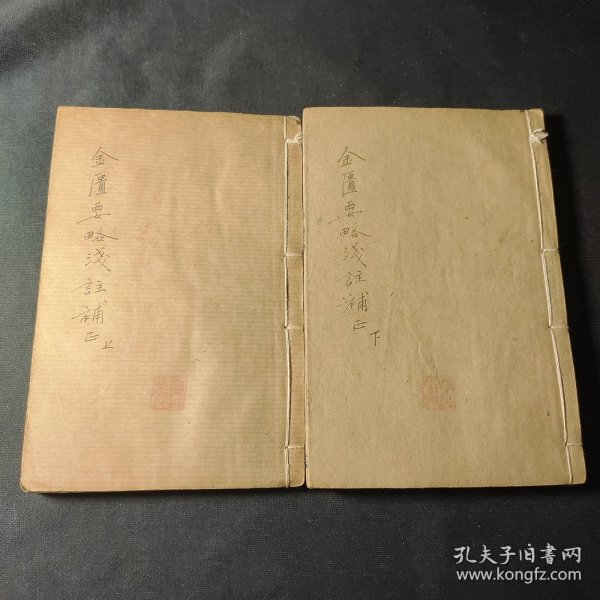 金匱要略淺註補正 上
金匱要略淺註補正 下
孔夫子旧书网
www.kongfz.com